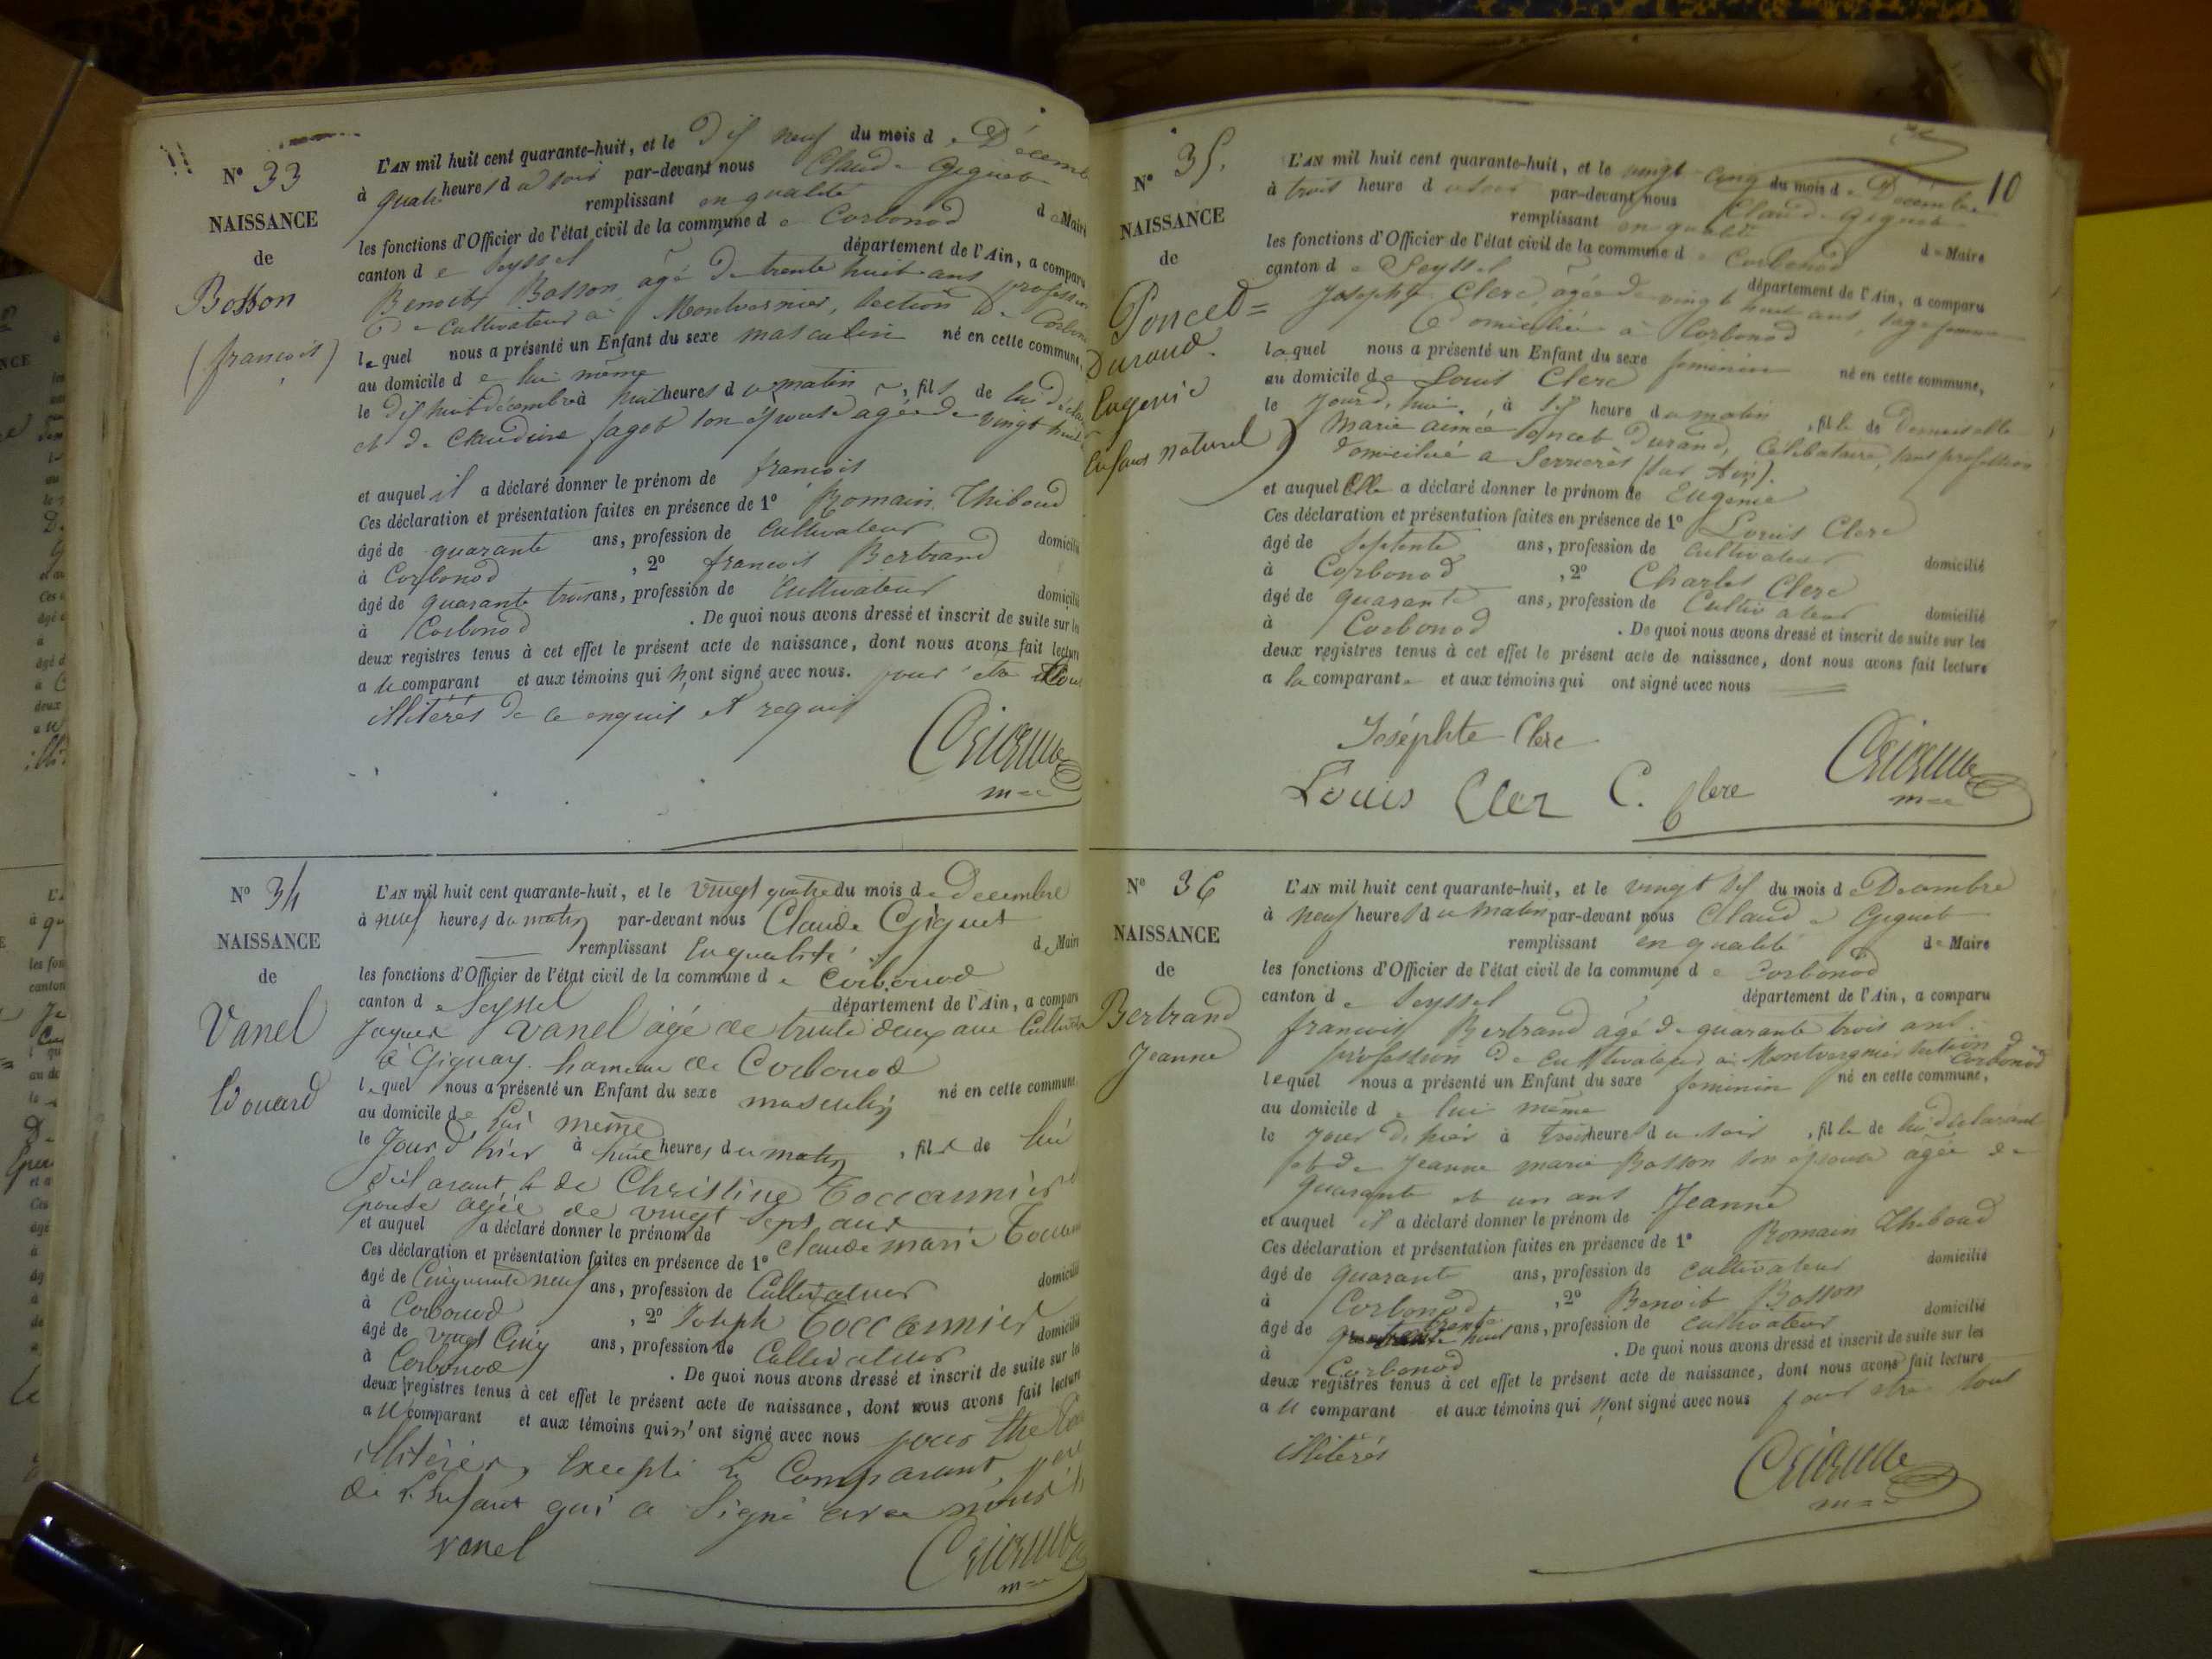 N° 33
NAISSANCE
de
Bosson
(françois)
L'AN mil huit cent quarante-huit, et le dix neuf du mois de Décemb
à quatre heures du soir par-devant nous Claude Giguet
remplissant en qualité de Maire
les fonctions d'Officier de l'état civil de la commune de Corbonod
canton de Seyssel département de l'Ain, a comparu
Benoit Bosson âgé de trente huit ans profession
de cultivateur à Montvernier, section de Corbon
lequel nous a présenté un Enfant du sexe masculin né en cette commune,
au domicile de lui même
le dix huit décembre à huit heures du matin, fils de lui décla
et de Claudine fagot son épouse agée de vingt huit
et auquel il a déclaré donner le prénom de françois
Ces déclaration et présentation faites en présence de 1° Romain Thiboud
âgé de quarante ans, profession de cultivateur domicilié
à Corbonod, 2° françois Bertrand
âgé de quarante trois ans, profession de Cultivateur domicilié
à Corbonod. De quoi nous avons dressé et inscrit de suite sur les
deux registres tenus à cet effet le présent acte de naissance, dont nous avons fait lecture
a u comparant et aux témoins qui n'ont signé avec nous. pour etre tous
illitérés de ce enquis et requis
N° 34
NAISSANCE
de
Vanel
Edouard
L'AN mil huit cent quarante-huit, et le vingt quatre du mois de Decembre
à neuf heures du matin par-devant nous Claude Giguet
remplissant En qualité de Maire
les fonctions d'Officier de l'état civil de la commune de Corbonod
canton de Seyssel département de l'Ain, a comparu
Jaques Vanel âgé de trente deux ans Cultivateur
à Gignay hameau de Corbonod
lequel nous a présenté un Enfant du sexe masculin né en cette commune,
au domicile de lui même
le Jour d'hier à heures du matin, fils de lui
déclarant & de Christine Toccannier
pouse agée de vingt sept ans
et auquel a déclaré donner le prénom de
Ces déclaration et présentation faites en présence de 1° Claude marie
âgé de Cinquante neuf ans, profession de Cultivateur domicilié
à Corbonod, 2° Joseph Toccannier
âgé de vingt Cinq ans, profession de Cultivateur domicilié
à Corbonod. De quoi nous avons dressé et inscrit de suite sur les
deux registres tenus à cet effet le présent acte de naissance, dont nous avons fait lecture
a u comparant et aux témoins qui n'ont signé avec nous pour
illitérés, Excepté Le Comparant, père
de L'Enfant qui a Signé avec nous
vanel
10
N° 35.
NAISSANCE
de
Poncet=
Durand.
Eugenie
Enfant naturel)
L'AN mil huit cent quarante-huit, et le vingt-cinq du mois de Décembre
à trois heure du soir par-devant nous Claude Giguet
remplissant en qualité de Maire
les fonctions d'Officier de l'état civil de la commune de Corbonod
canton de Seyssel département de l'Ain, a comparu
Josephte Clerc, âgée de vingt huit ans, sage femme
Domiciliée à Corbonod
laquel nous a présenté un Enfant du sexe feminin né en cette commune,
au domicile de Louis Clerc
le jourd'hui, à six heure du matin, fille de Demoiselle
Marie aimée Poncet Durand, Célibataire, sans profession
domiciliée a Serrières (sur Ain).
et auquel Elle a déclaré donner le prénom de Eugénie
Ces déclaration et présentation faites en présence de 1° Louis Clerc
âgé de septente ans, profession de cultivateur domicilié
à Corbonod, 2° Charles Clerc
âgé de quarante ans, profession de Cultivateur domicilié
à Corbonod. De quoi nous avons dressé et inscrit de suite sur les
deux registres tenus à cet effet le présent acte de naissance, dont nous avons fait lecture
a la comparante et aux témoins qui ont signé avec nous
Joséphte Clerc
Louis Cler C. Clerc
N° 36
NAISSANCE
de
Bertrand
Jeanne
L'AN mil huit cent quarante-huit, et le vingt six du mois de Decembre
à neuf heures du matin par-devant nous Claude Giguet
remplissant en qualité de Maire
les fonctions d'Officier de l'état civil de la commune de Corbonod
canton de Seyssel département de l'Ain, a comparu
francois Bertrand agé de quarante trois ans.
profession de cultivateur à Montvergnier section de Corbonod
lequel nous a présenté un Enfant du sexe feminin né en cette commune,
au domicile de lui même
le jour d'hier à trois heures du soir, fille de lui déclarant
et de Jeanne marie Bosson son épouse agée de
quarante et un ans
et auquel il a déclaré donner le prénom de Jeanne
Ces déclaration et présentation faites en présence de 1° Romain Thiboud
âgé de quarante ans, profession de cultivateur domicilié
à Corbonod, 2° Benoit Bosson
âgé de trente huit ans, profession de cultivateur domicilié
à Corbonod. De quoi nous avons dressé et inscrit de suite sur les
deux registres tenus à cet effet le présent acte de naissance, dont nous avons fait lecture
a u comparant et aux témoins qui n'ont signé avec nous pour etre tous
illitérés